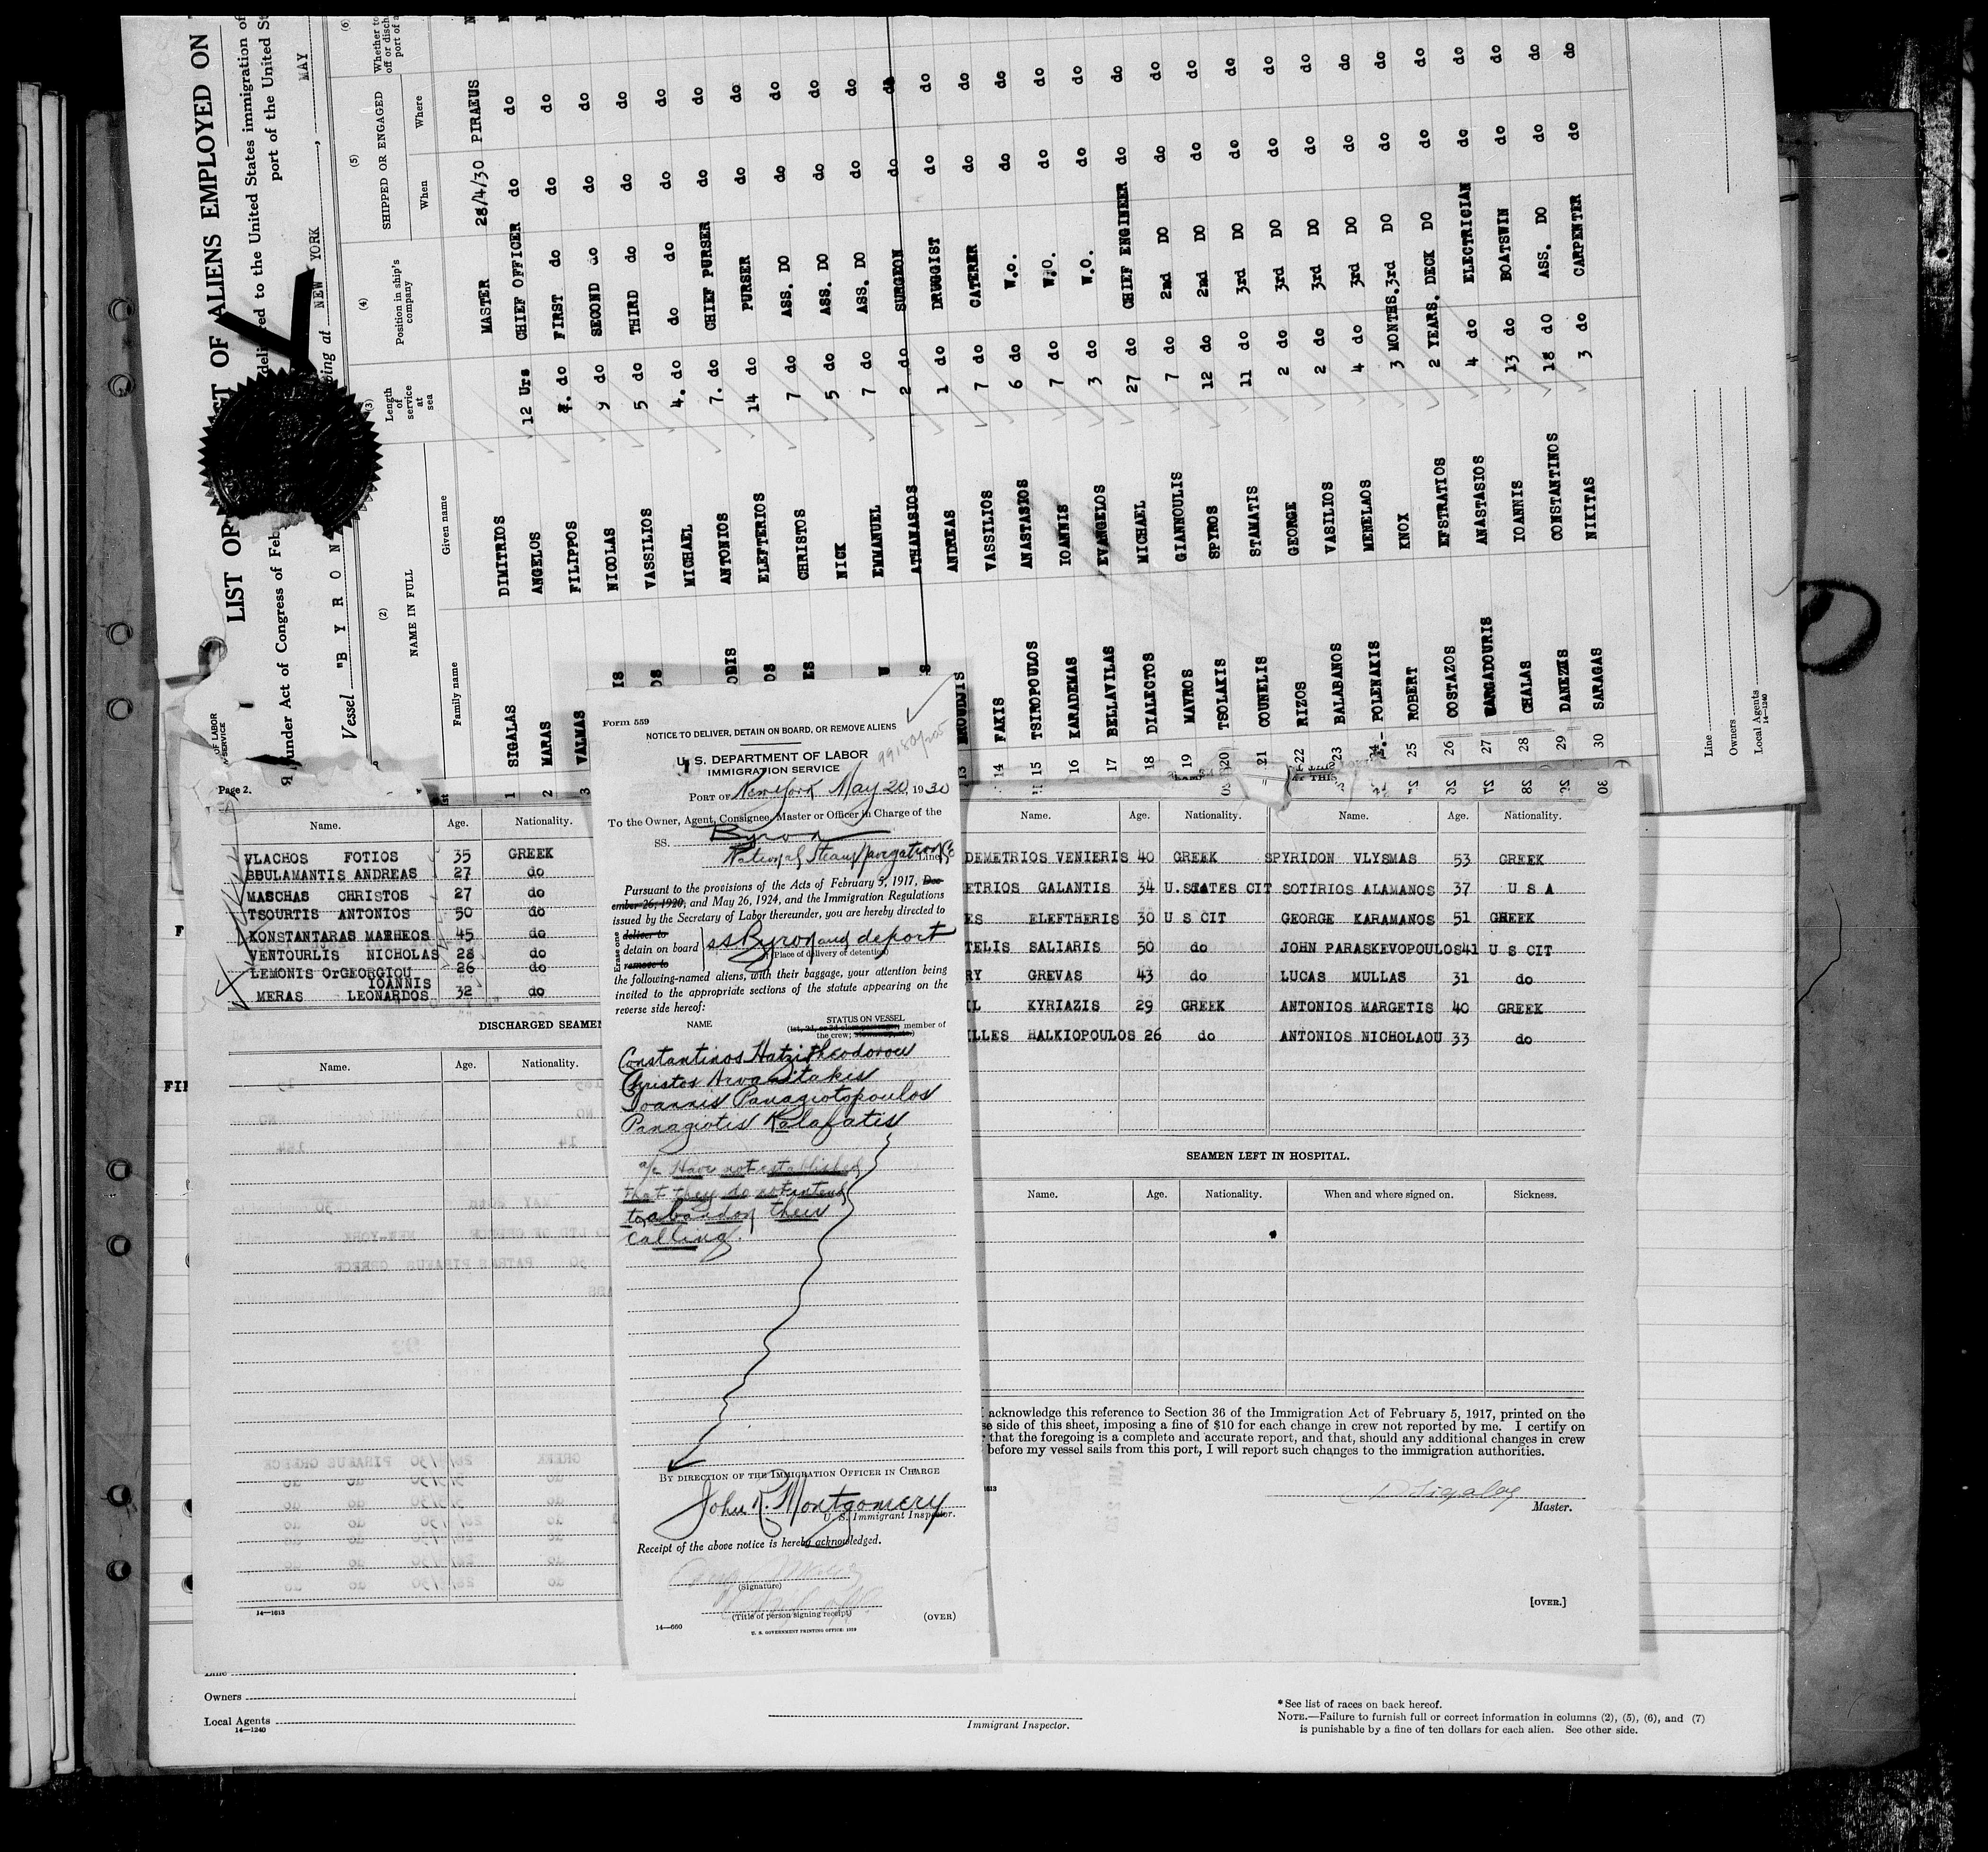 LIST OR
ST OF ALIENS EMPLOYED ON
under Act of Congress of Feb
delivered to the United States immigration of
port of the United St
Vessel "B Y R O N
at NEW YORK, MAY
(2)
NAME IN FULL
Family name Given name
(3)
Length of service at sea
(4)
Position in ship's company
(5)
SHIPPED OR ENGAGED
When Where
(6)
Whether to
off or disch
port of a
1 SIGALAS DIMITRIOS MASTER 28/4/30 PIRAEUS
2 MARAS ANGELOS 12 Urs CHIEF OFFICER do do
3 VALMAS FILIPPOS do FIRST do do do
NICOLAS 9 do SECOND do do do
VASSILIOS 5 do THIRD do do do
MICHAEL 4. do do do do do
ANTONIOS 7. do CHIEF PURSER do do
ELEFTERIOS 14 do PURSER do do
CHRISTOS 7 do ASS. DO do do
NICK 5 do ASS. DO do do
EMMANUEL 7 do ASS. DO do do
ATHANASIOS 2 do SURGEON do do
13 ANDREAS 1 do DRUGGIST do do
14 FAKIS VASSILIOS 7 do CATERER do do
15 TSIROPOULOS ANASTASIOS 6 do W.O. do do
16 KARADEMAS IOANNIS 7 do W.O. do do
17 BELLAVILAS EVANGELOS 3 do W.O. do do
18 DIALECTOS MICHAEL 27 do CHIEF ENGINEER do do
19 MAVROS GIANNOULIS 7 do 2nd DO do do
20 TSOLAKIS SPYROS 12 do 2nd DO do do
21 COUNELIS STAMATIS 11 do 3rd DO do do
22 RIZOS GEORGE 2 do 3rd DO do do
23 BALABANOS VASILIOS 2 do 3rd DO do do
24 POLENAKIS MENELAOS 4 do 3rd DO do do
25 ROBERT KNOX 3 MONTHS. 3rd DO do do
26 COSTAZOS EFSTRATIOS 2 YEARS. DECK DO do do
27 GARGADOURIS ANASTASIOS 4 do ELECTRICIAN do do
28 CHALAS IOANNIS 13 do BOATSWIN do do
29 DANEZIS CONSTANTINOS 18 do ASS. DO do do
30 SARAGAS NIKITAS 3 do CARPENTER do do
Line
Owners
Local Agents
14—1240
OF LABOR
SERVICE
Page 2.
Name. Age. Nationality.
VLACHOS FOTIOS 35 GREEK
BBULAMANTIS ANDREAS 27 do
MASCHAS CHRISTOS 27 do
TSOURTIS ANTONIOS 50 do
KONSTANTARAS MATHEOS 45 do
VENTOURLIS NICHOLAS 28 do
LEMONIS OrGEORGIOU 26 do
IOANNIS
MERAS LEONARDOS 32 do
DISCHARGED SEAMEN
Name. Age. Nationality.
14—1613
Form 559
NOTICE TO DELIVER, DETAIN ON BOARD, OR REMOVE ALIENS
U. S. DEPARTMENT OF LABOR
IMMIGRATION SERVICE
99180/205
PORT OF New York May 20, 1930
To the Owner, Agent, Consignee, Master or Officer in Charge of the
SS. Byron
National Steam Navigation Co Line
Pursuant to the provisions of the Acts of February 5, 1917, Dec-
ember 26, 1920, and May 26, 1924, and the Immigration Regulations
issued by the Secretary of Labor thereunder, you are hereby directed to
Erase one
deliver to
detain on board
remove to
ss Byron and deport
(Place of delivery of detention)
the following-named aliens, with their baggage, your attention being
invited to the appropriate sections of the statute appearing on the
reverse side hereof:
NAME STATUS ON VESSEL
(1st, 2d, or 3d class passenger, member of
the crew;
Constantinos Hatzitheodorou
Christos Arvanitakis
Ioannis Panagiotopoulos
Panagiotis Kalafatis
a/c Have not established
that they do not intend
to abandon their
calling.
BY DIRECTION OF THE IMMIGRATION OFFICER IN CHARGE
John R. Montgomery
U. S. Immigrant Inspector.
Receipt of the above notice is hereby acknowledged.
(Signature)
(Title of person signing receipt)
14—660
U. S. GOVERNMENT PRINTING OFFICE: 1929
(OVER)
Name. Age. Nationality. Name. Age. Nationality.
DEMETRIOS VENIERIS 40 GREEK SPYRIDON VLYSMAS 53 GREEK
ETRIOS GALANTIS 34 U.STATES CIT SOTIRIOS ALAMANOS 37 U S A
ES ELEFTHERIS 30 U S CIT GEORGE KARAMANOS 51 GREEK
TELIS SALIARIS 50 do JOHN PARASKEVOPOULOS 41 U S CIT
RY GREVAS 43 do LUCAS MULLAS 31 do
IL KYRIAZIS 29 GREEK ANTONIOS MARGETIS 40 GREEK
ILLES HALKIOPOULOS 26 do ANTONIOS NICHOLAOU 33 do
SEAMEN LEFT IN HOSPITAL.
Name. Age. Nationality. When and where signed on. Sickness.
I acknowledge this reference to Section 36 of the Immigration Act of February 5, 1917, printed on the
se side of this sheet, imposing a fine of $10 for each change in crew not reported by me. I certify on
that the foregoing is a complete and accurate report, and that, should any additional changes in crew
before my vessel sails from this port, I will report such changes to the immigration authorities.
D Sigalas
Master.
[OVER.]
Line
Owners
Local Agents
14—1240
Immigrant Inspector.
* See list of races on back hereof.
NOTE.—Failure to furnish full or correct information in columns (2), (5), (6), and (7)
is punishable by a fine of ten dollars for each alien. See other side.